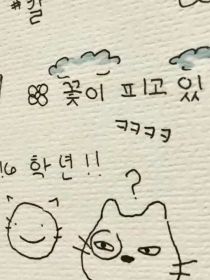 #칼
꽃이 피고 있
ㅋㅋㅋㅋ
16 학년!!
?